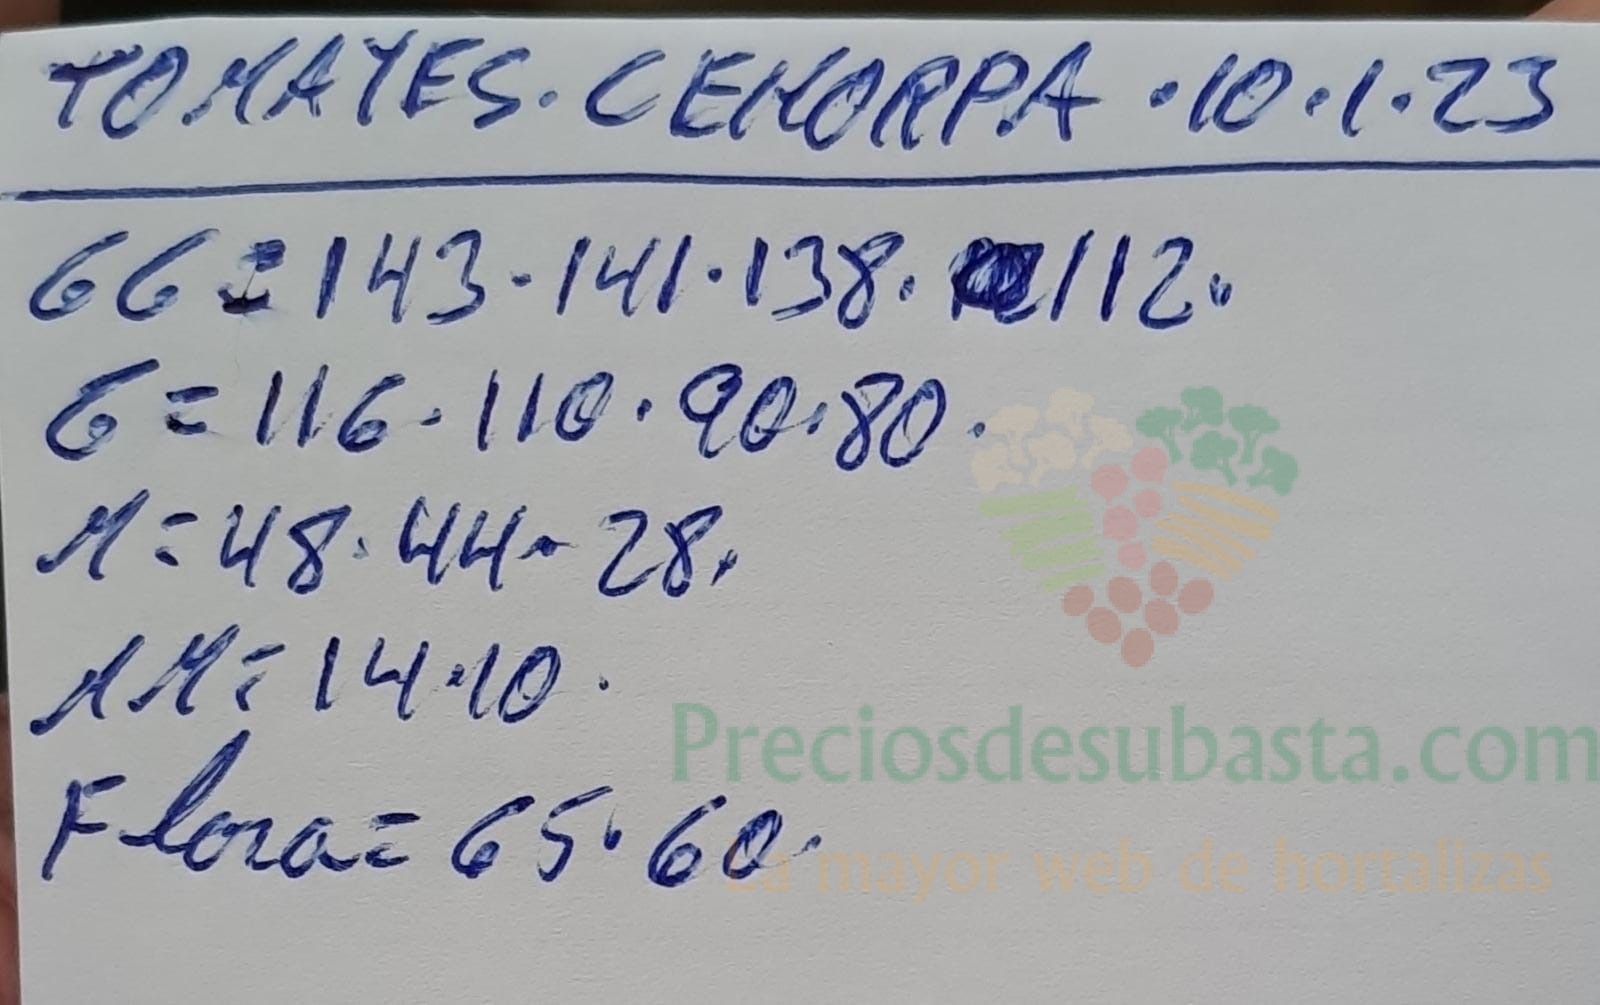 TOMATES. CEHORPA . 10.1.23
GG = 143 . 141 . 138 . 112 .
G = 116 . 110 . 90 . 80 .
M = 48 . 44 . 28 .
MM = 14 . 10 .
Flora = 65 . 60 .
Preciosdesubasta.com
La mayor web de hortalizas